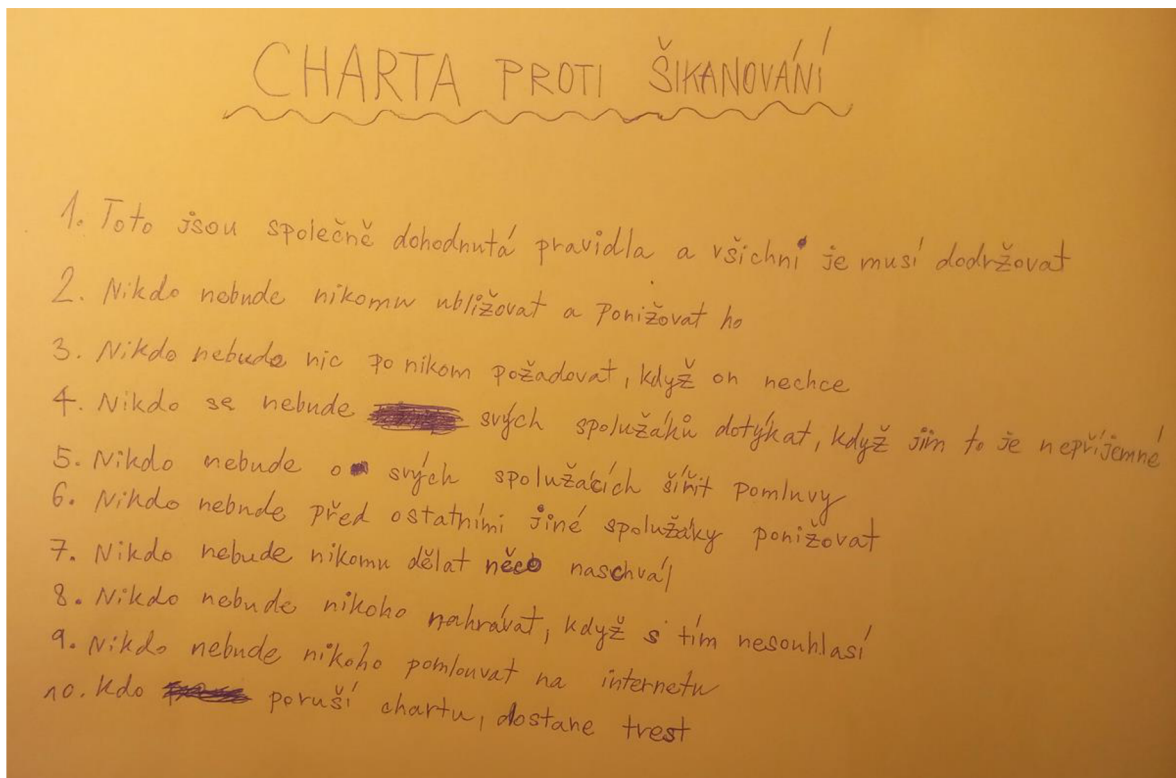 CHARTA PROTI ŠIKANOVÁNÍ
1. Toto jsou společně dohodnutá pravidla a všichni je musí dodržovat
2. Nikdo nebude nikomu ubližovat a ponižovat ho
3. Nikdo nebude nic po nikom požadovat, když on nechce
4. Nikdo se nebude svých spolužáků dotýkat, když jim to je nepříjemné
5. Nikdo nebude o svých spolužácích šířit pomluvy
6. Nikdo nebude před ostatními jiné spolužáky ponižovat
7. Nikdo nebude nikomu dělat něco naschvál
8. Nikdo nebude nikoho nahrávat, když s tím nesouhlasí
9. Nikdo nebude nikoho pomlouvat na internetu
10. Kdo poruší chartu, dostane trest